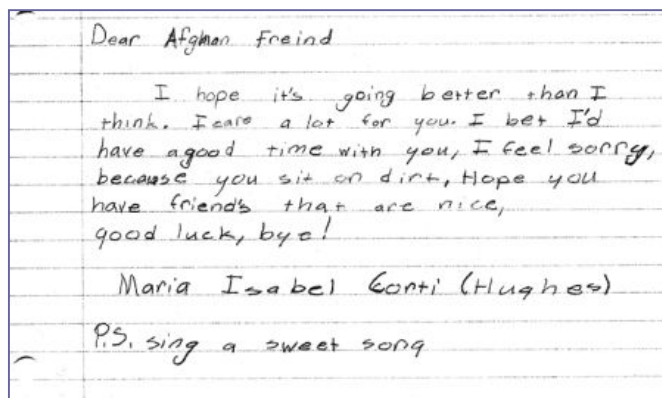 Dear Afghan Freind
I hope it's going better than I
think. I care a lot for you. I bet I'd
have a good time with you, I feel sorry,
because you sit on dirt, Hope you
have friend's that are nice,
good luck, bye!
Maria Isabel Conti (Hughes)
P.S. sing a sweet song